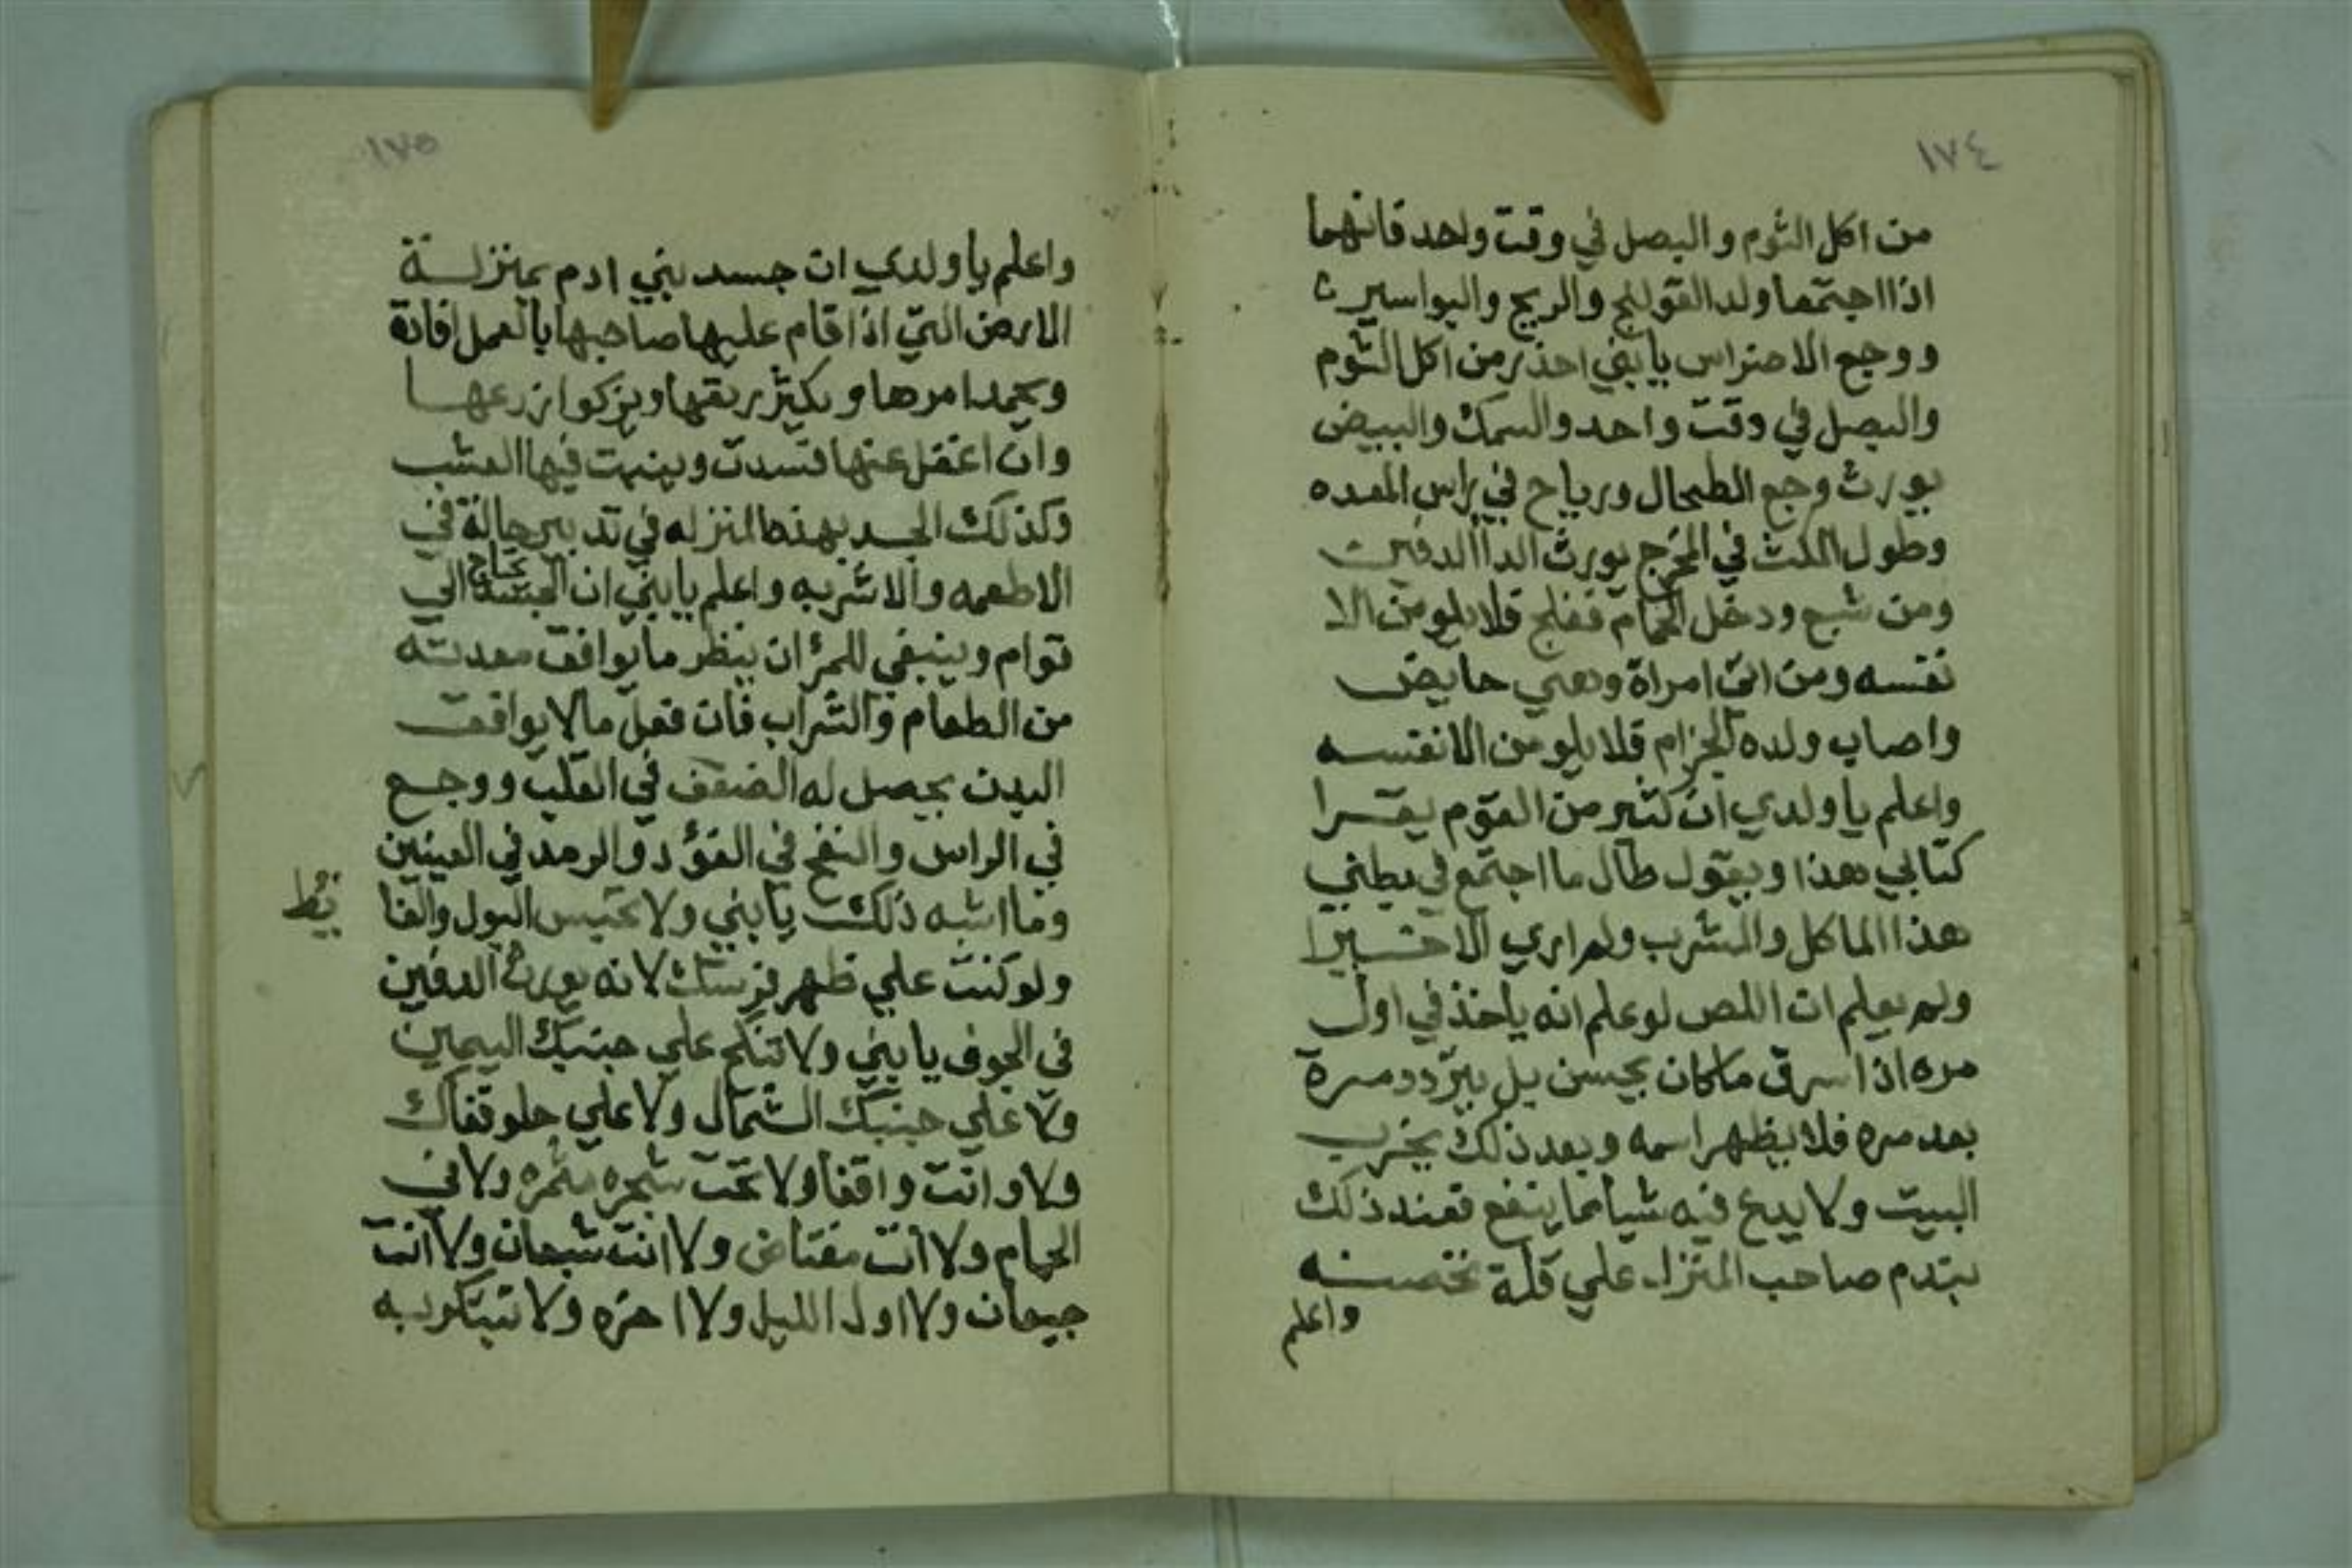 ١٧٤
من اكل الثوم والبصل في وقت واحد فانهما
اذا اجتمعا ولد القولنج والريح والبواسير
ووجع الاضراس يا بني احذر من اكل الثوم
والبصل في وقت واحد والسمك والبيض
يورث وجع الطحال ورياح في راس المعده
وطول المكث في المخرج يورث الدا الدفين
ومن شبع ودخل الحمام ففلج فلا يلومن الا
نفسه ومن اتى امراة وهي حايض
واصاب ولده الجزام فلا يلومن الا نفسه
واعلم يا ولدي ان كثير من القوم يقرا
كتابي هذا ويقول طال ما اجتمع في بطني
هذا الماكل والمشرب ولم اري الا خيرا
ولم يعلم ان اللص لو علم انه ياخذ في اول
مره اذا سرق ما كان يحسن بل يتردد مرة
بعد مره فلا يظهر اسمه وبعد ذلك يخرب
البيت ولا يدع فيه شيا مما ينفع فعند ذلك
يندم صاحب المنزل علي قلة تحصينه
واعلم
١٧٥
واعلم يا ولدي ان جسد بني ادم بمنزلة
الارض التي اذا قام عليها صاحبها بالعمل فانه
ويحمد امرها ويكثر ريعها ويزكوا زرعها
وان اغفل عنها فسدت وينبت فيها العشب
وكذلك الجسد بهذه المنزله في تدبير حالة في
الاطعمه والاشربه واعلم يا بني ان الجسد يحتاج الي
قوام وينبغي للمرؤ ان ينظر ما يوافق معدته
من الطعام والشراب فان فعل ما لا يوافق
البدن يحصل له الضعف في القلب ووجع
في الراس والنفخ في الفؤد والرمد في العينين
وما اشبه ذلك يا بني ولا تحبس البول والغا
يط
ولو كنت علي ظهر فرسك لانه يورث الدفين
في الجوف يا بني ولا تنكح علي جنبك اليمين
ولا علي جنبك الشمال ولا علي حلو قفاك
ولا وانت واقفا ولا تحت شجره مثمره ولا في
الحمام ولا انت مغتاض ولا انت شبعان ولا انت
جيعان ولا اول الليل ولا اخره ولا